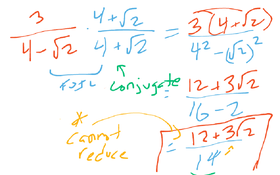 3/(4-√2) · (4+√2)/(4+√2) = 3(4+√2)/(4²-(√2)²)
conjugate
= (12+3√2)/(16-2)
* cannot reduce
= (12+3√2)/14